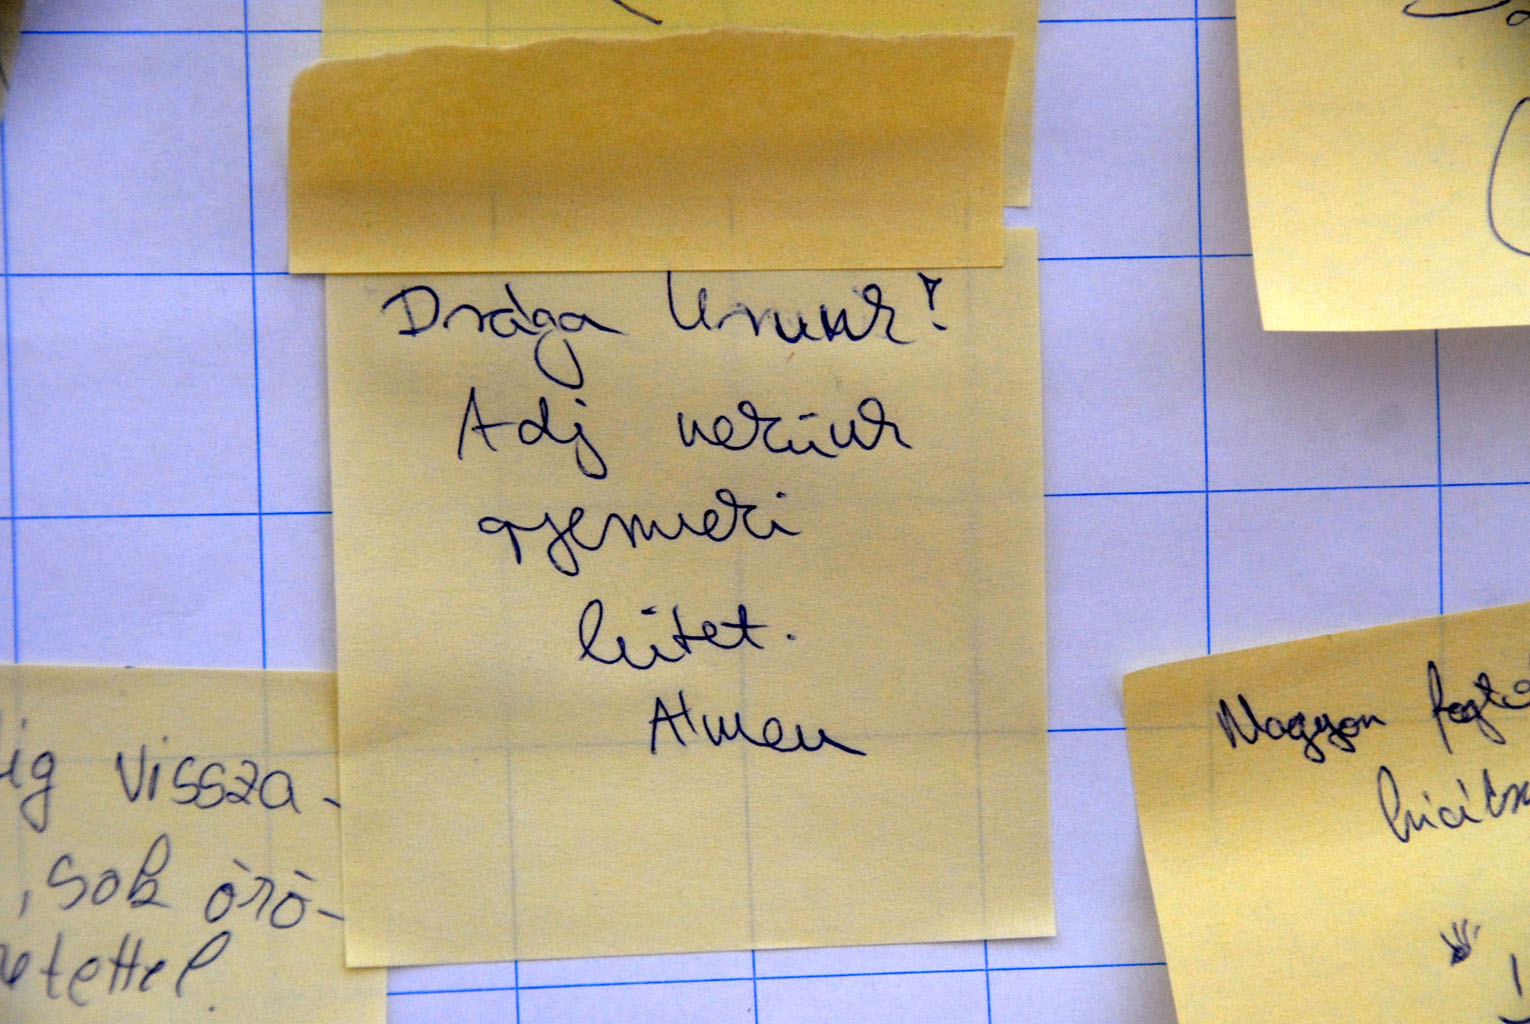 Drága Urunk!
Adj nekünk
gyermeki
hitet.
Ámen
ig vissza-
, sok örö-
tettel.
Nagyon